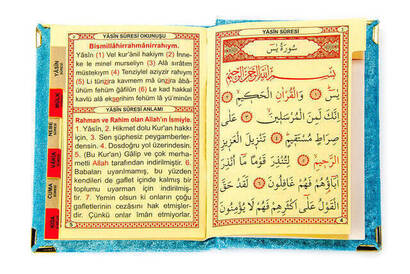 YÂSÎN SÛRESİ OKUNUŞU
Bismillâhirrahmânirrahıym.
Yâsîn (1) Vel kur'ânil hakiym (2) İnne-
ke le minel murseliyn (3) Alâ sırâtım
müstekıym (4) Tenziylel aziyzir rahıym
(5) Li tünzira kavmem mâ ünzira âbâ-
ühüm fehüm ğâfilûn (6) Le kad hakkal
kavlü alâ ekserihim fehüm lâ yü'minûn
YÂSÎN SÛRESİ ANLAMI
Rahman ve Rahim olan Allah'ın İsmiyle.
1. Yâsîn, 2. Hikmet dolu Kur'an hakkı
için, 3. Sen şüphesiz peygamberler-
densin. 4. Dosdoğru yol üzerindesin.
5. (Bu Kur'an) Gâlip ve çok merha-
metli Allah tarafından indirilmiştir. 6.
Babaları uyarılmamış, bu yüzden
kendileri de gaflet içinde kalmış bir
toplumu uyarman için indirilmiş-
tir. 7. Yemin olsun ki onların çoğu
gafletlerinin cezasını hak etmişler-
dir. Çünkü onlar iman etmiyorlar.
YÂSÎN
MÜLK
NEBE
CUMA
KISA
4
YÂSÎN SÛRESİ
سُورَةُ يٰسٓ
بِسْمِ اللّٰهِ الرَّحْمٰنِ الرَّحِيمِ
يٰسٓ ﴿١﴾ وَالْقُرْاٰنِ الْحَكِيمِ ﴿٢﴾
اِنَّكَ لَمِنَ الْمُرْسَلِينَ ﴿٣﴾ عَلٰى
صِرَاطٍ مُسْتَقِيمٍ ﴿٤﴾ تَنْزِيلَ الْعَزِيزِ
الرَّحِيمِ ﴿٥﴾ لِتُنْذِرَ قَوْمًا مَٓا اُنْذِرَ
اٰبَٓاؤُهُمْ فَهُمْ غَافِلُونَ ﴿٦﴾ لَقَدْ حَقَّ
الْقَوْلُ عَلٰٓى اَكْثَرِهِمْ فَهُمْ لَا يُؤْمِنُونَ
5